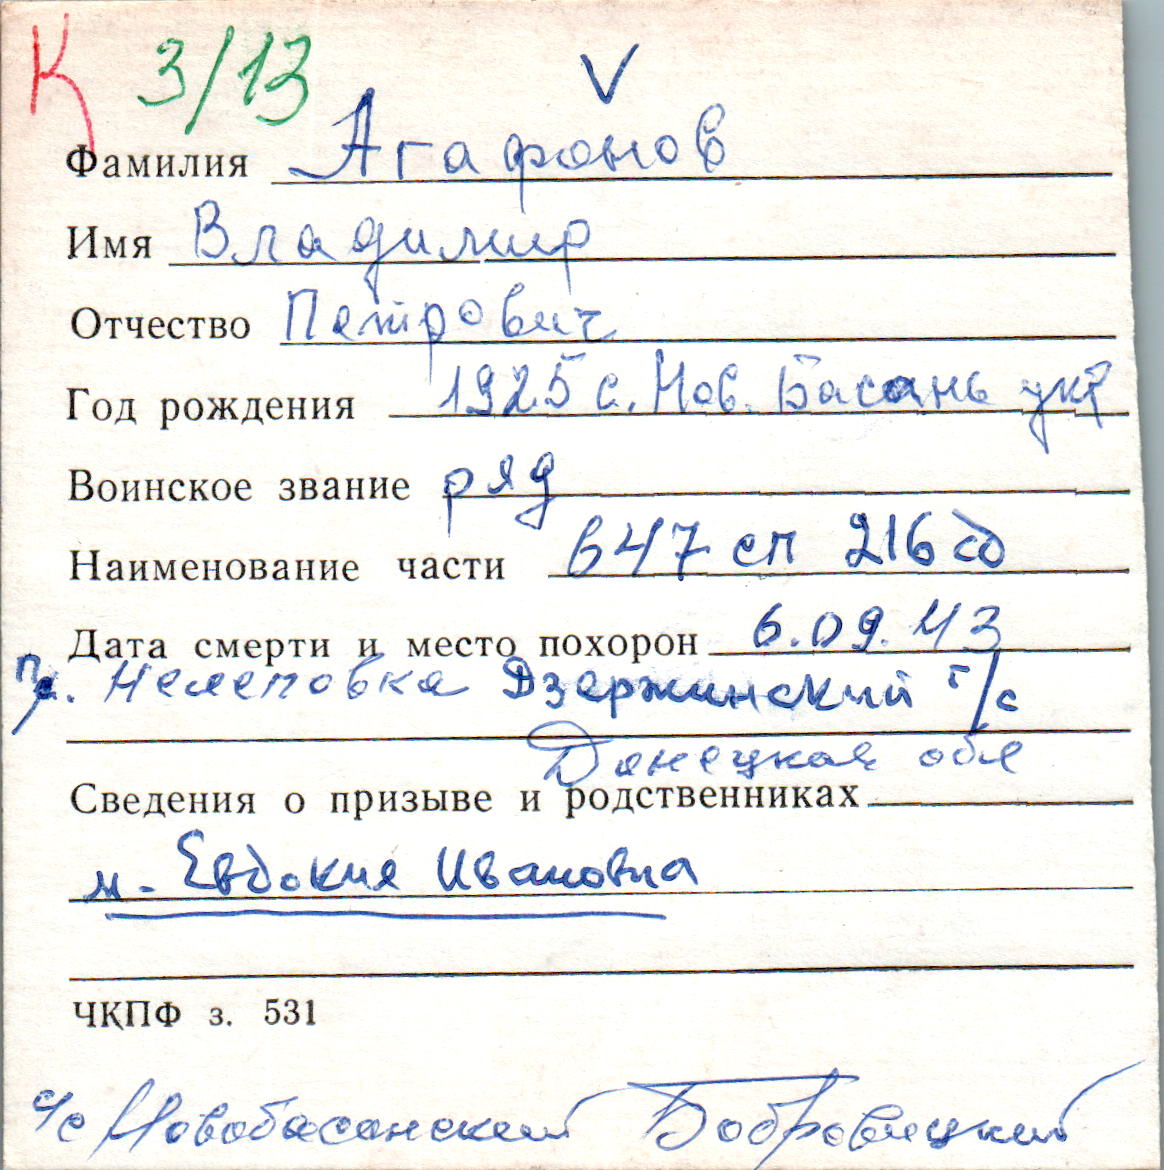 К 3/13 V
Фамилия Агафонов
Имя Владимир
Отчество Петрович
Год рождения 1925 с. Нов. Басань укр
Воинское звание ряд
Наименование части 647 сп 216 сд
Дата смерти и место похорон 6.09.43
п. Нелеповка Дзержинский г/с
Донецкая обл
Сведения о призыве и родственниках
м. Евдокия Ивановна
ЧКПФ з. 531
с/с Новобасанский Бобровицкий